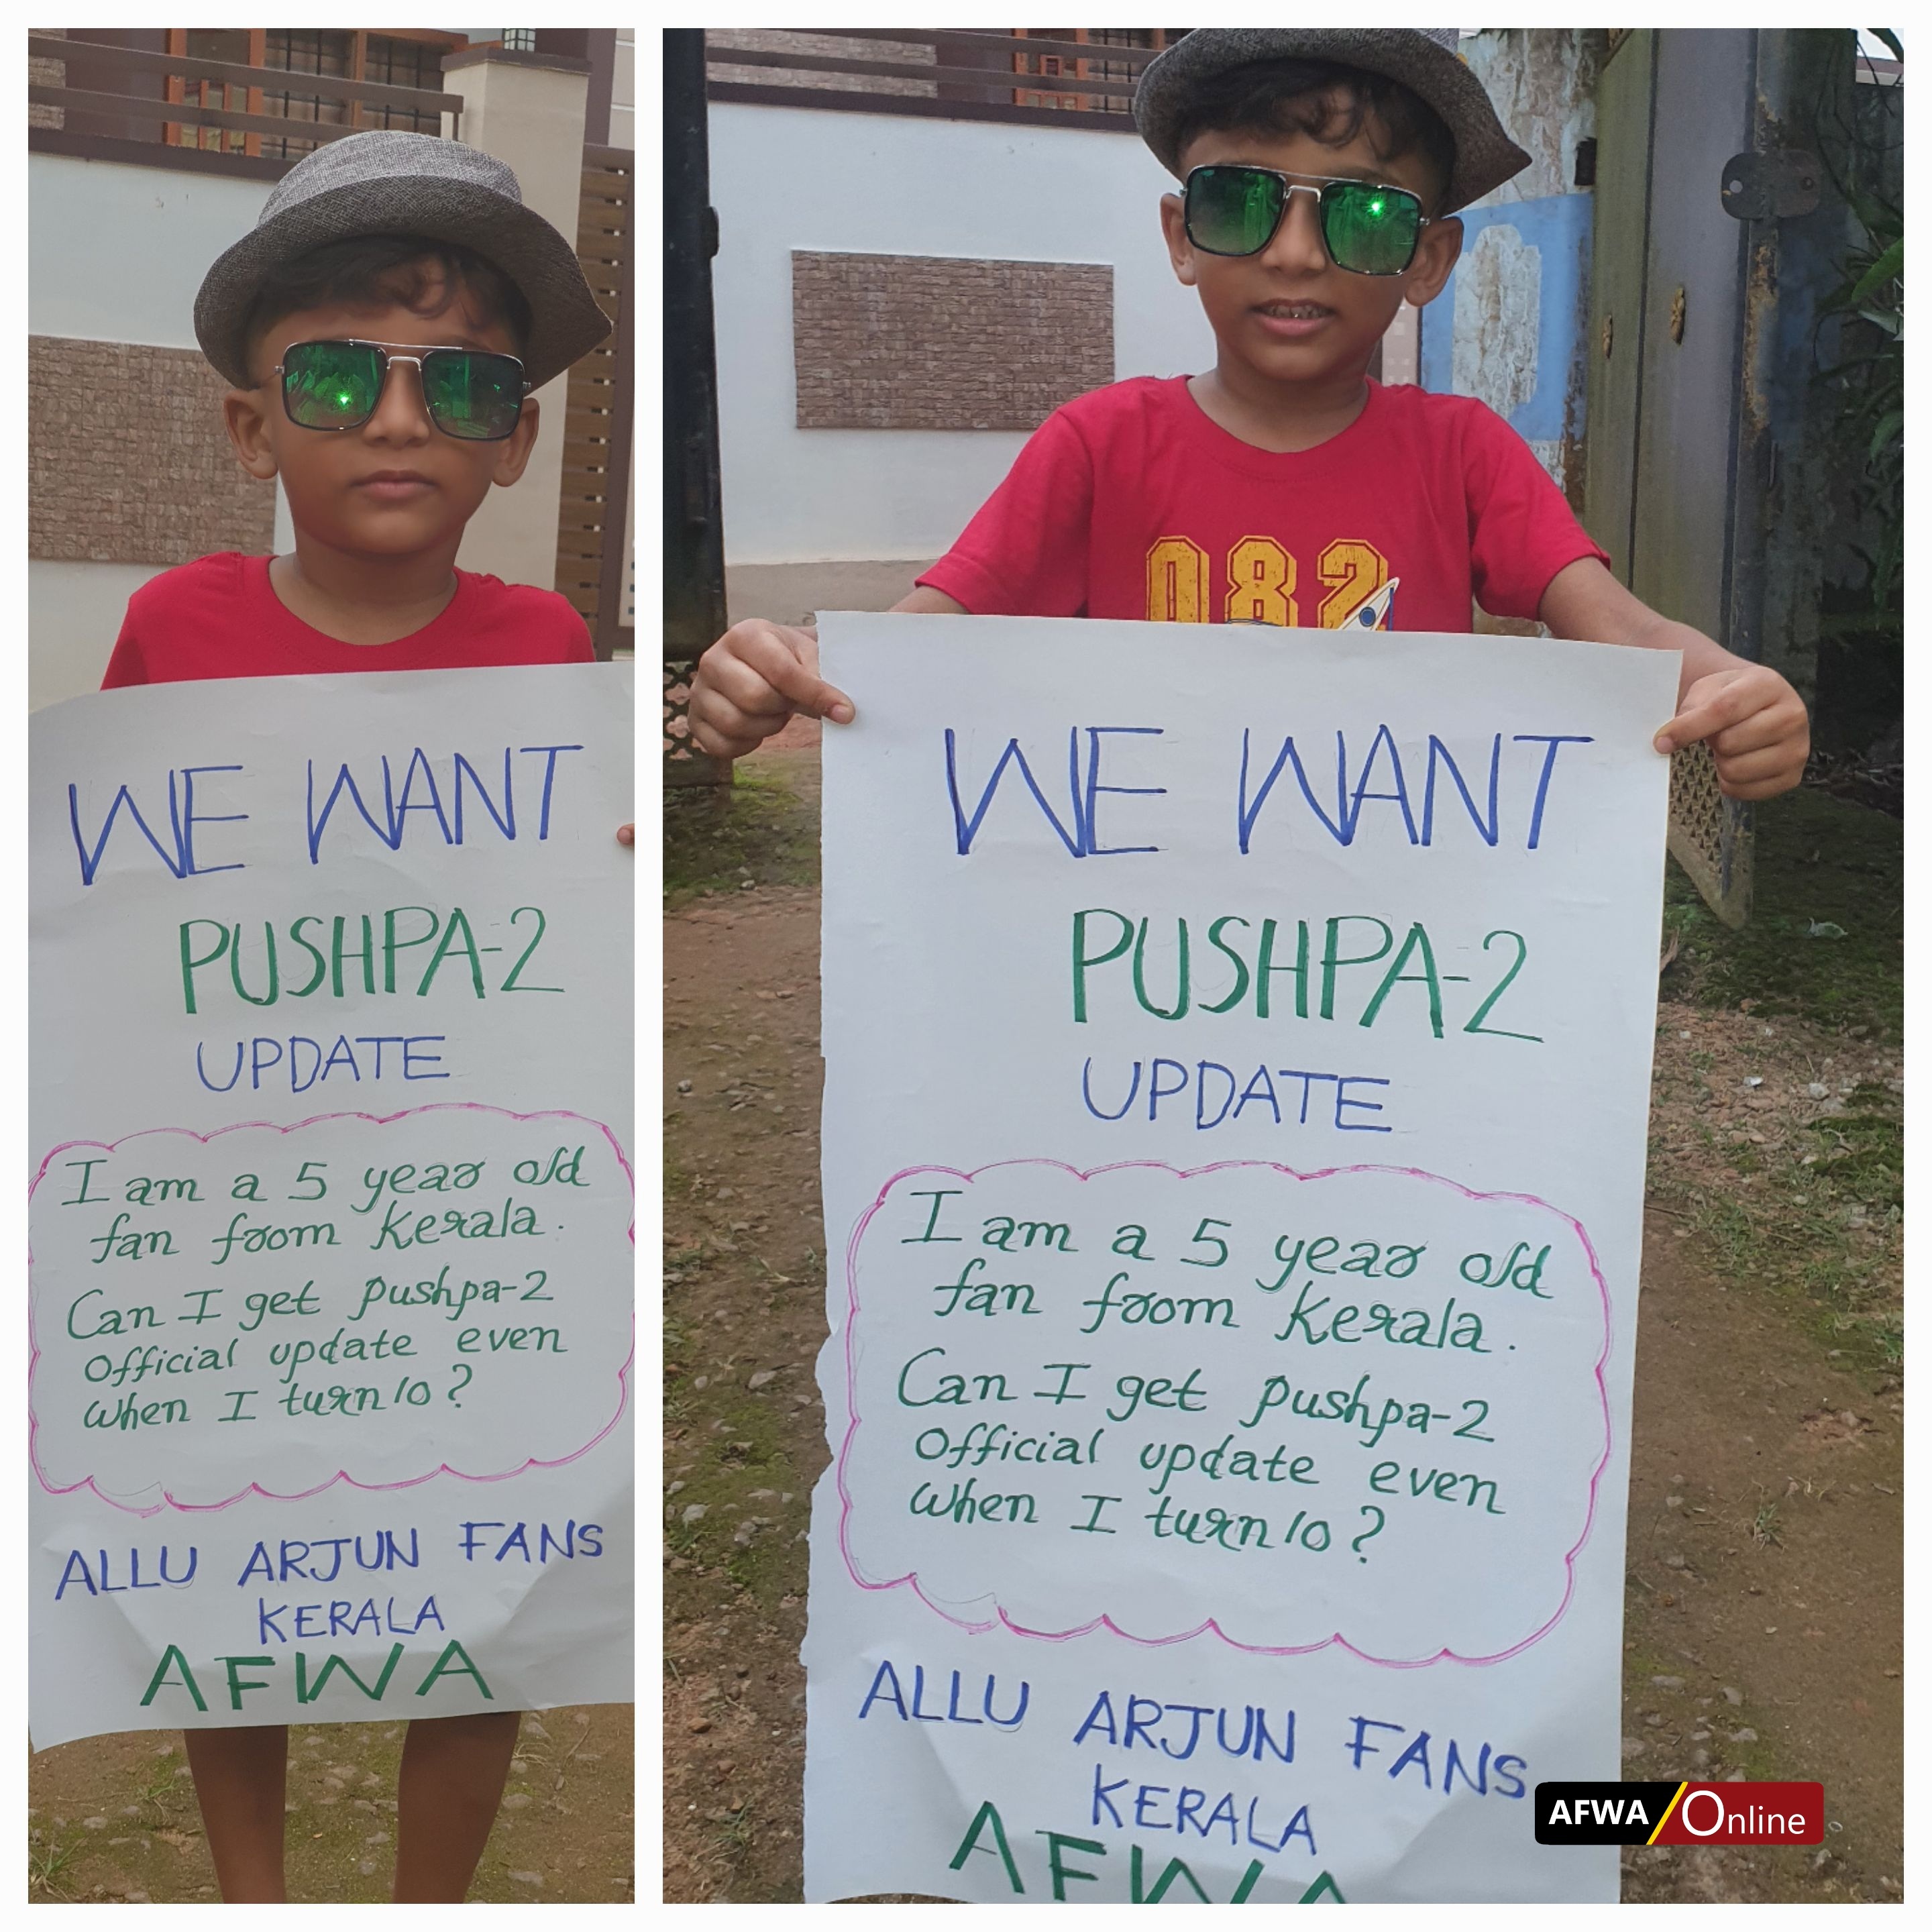 WE WANT
PUSHPA-2
UPDATE
I am a 5 year old
fan from Kerala.
Can I get pushpa-2
Official update even
when I turn 10?
ALLU ARJUN FANS
KERALA
AFWA
082
WE WANT
PUSHPA-2
UPDATE
I am a 5 year old
fan from Kerala.
Can I get pushpa-2
Official update even
when I turn 10?
ALLU ARJUN FANS
KERALA
AFWA
AFWA/Online